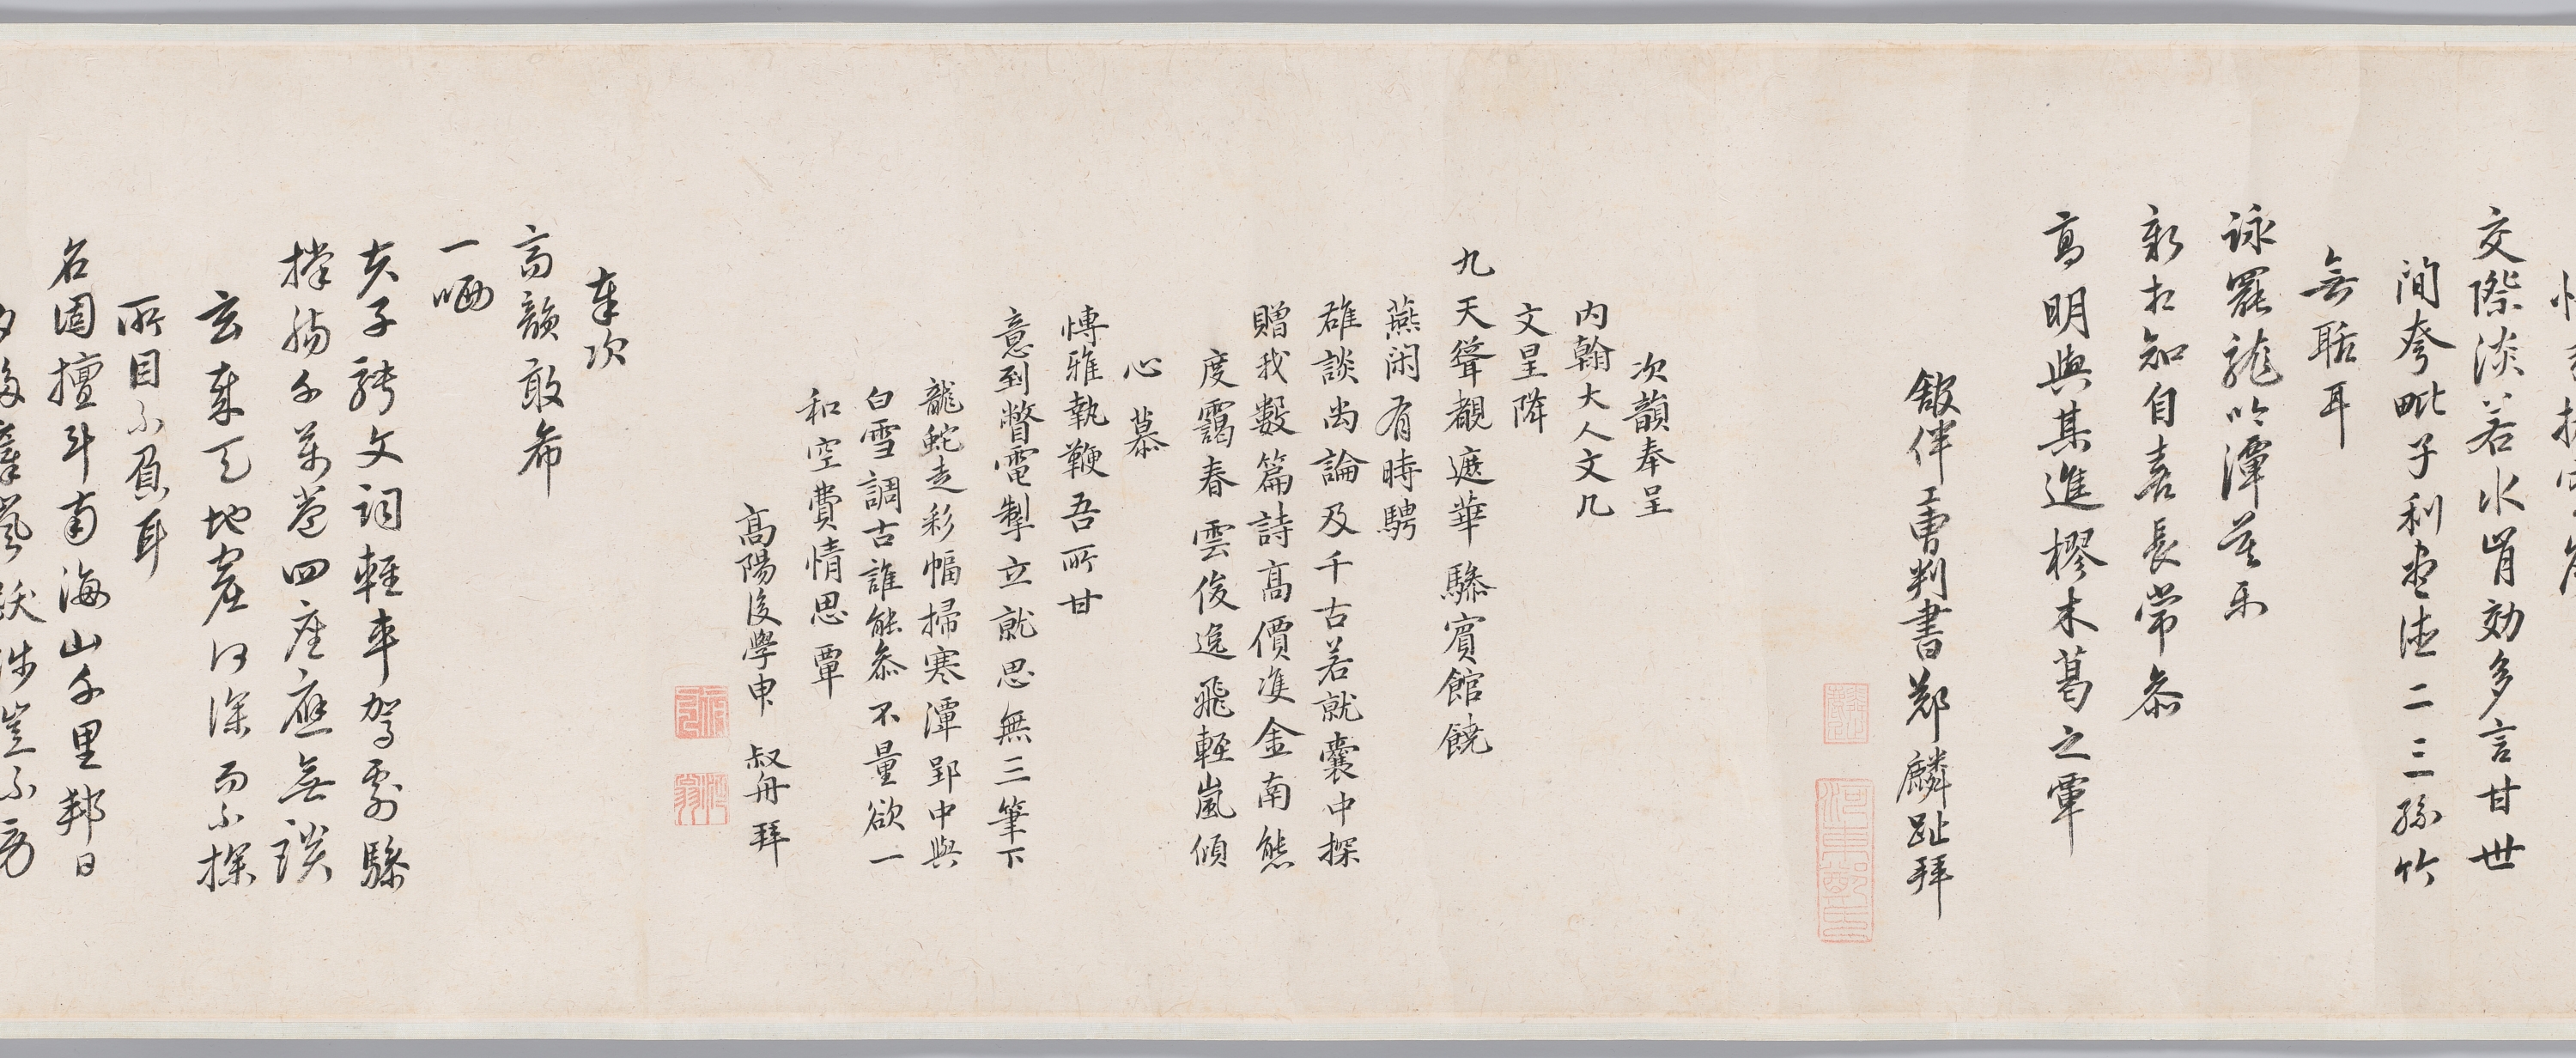 交際淡若水肯効多言甘世
間夸毗子利盡法二三孫竹
無聒耳
詠罷龍吟潭莫示
新知自喜長常忝
高明與其進樛木葛之覃
館伴工曹判書鄭麟趾拜
次韻奉呈
內翰大人文几
文星降
九天聳覩遮華驂賓館饒
燕閑有時騁
雄談尚論及千古若就囊中探
贈我數篇詩高價凌金南態
度靄春雲俊逸飛輕嵐傾
心慕
博雅執鞭吾所甘
意到瞥電掣立就思無三筆下
龍蛇走彩幅掃寒潭郢中與
白雪調古誰能忝不量欲一
和空費情思覃
高陽後學申叔舟拜
奉次
高韻敢希
一哂
夫子騁文詞輕車駕兩驂
撐腸千萬卷四座應無談
玄来天地窟何深而不探
所目不負耳
名園擅斗南海山千里邦日